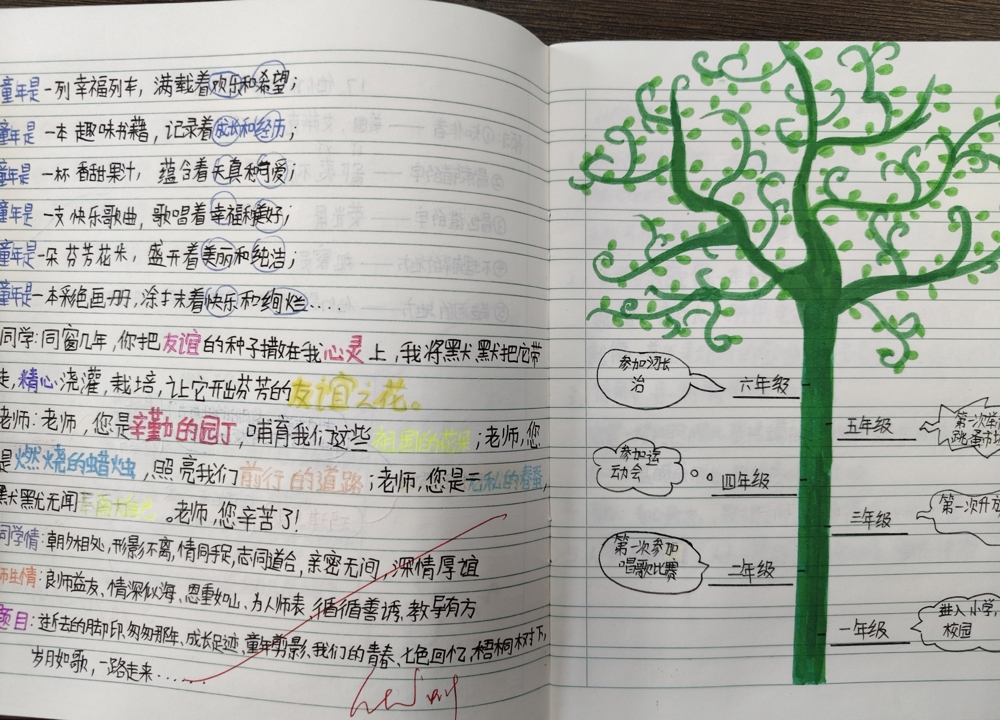 童年是一列幸福列车，满载着欢乐和希望；
童年是一本趣味书籍，记录着成长和经历；
童年是一杯香甜果汁，蕴含着天真和可爱；
童年是一支快乐歌曲，歌唱着幸福和美好；
童年是一朵芬芳花米，盛开着美丽和纯洁；
童年是一本彩色画册，涂抹着快乐和绚烂....
同学：同窗几年，你把友谊的种子撒在我心灵上，我将默默把它带
走，精心浇灌，栽培，让它开出芬芳的友谊之花。
老师：老师，您是辛勤的园丁，哺育我们这些祖国的花朵；老师，您
是燃烧的蜡烛，照亮我们前行的道路；老师，您是无私的春蚕，
默默无闻。老师，您辛苦了！
同学情：朝夕相处，形影不离，情同手足，志同道合，亲密无间，深情厚谊
师生情：良师益友、情深似海、恩重如山、为人师表、循循善诱、教导有方
题目：逝去的脚印、匆匆那年、成长足迹、童年剪影、我们的青春、七色回忆、梧桐树下，
岁月如歌，一路走来.....
参加成长
治
六年级
五年级
第一次举
跳蚤市场
参加运
动会
四年级
三年级
第一次升
第一次参加
唱歌比赛
二年级
一年级
进入小学，
校园